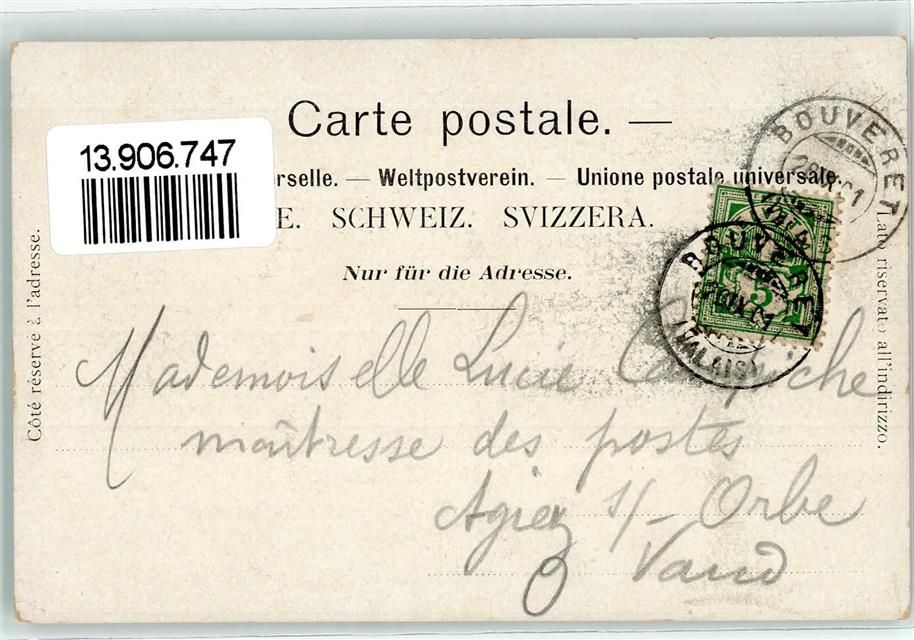 Carte postale. —
13.906.747
erselle. — Weltpostverein. — Unione postale universale.
E. SCHWEIZ. SVIZZERA.
Nur für die Adresse.
Côté réservé à l'adresse.
Lato riservato all'indirizzo.
BOUVERET
BOUVERET
(VALAIS)
5
Mademoiselle Lucie
maîtresse des postes
Agiez s/- Orbe
Vaud